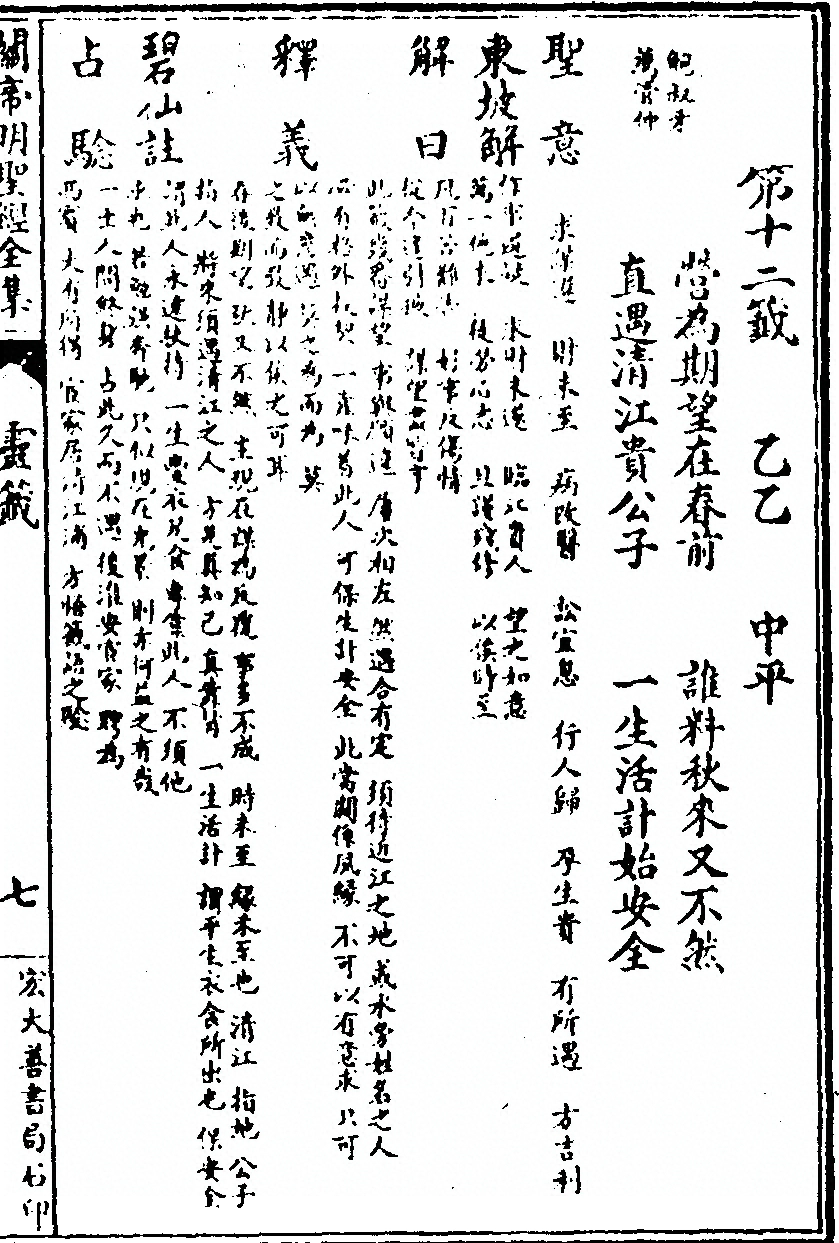 第十二籤 乙乙 中平
營為期望在春前 誰料秋來又不然
直遇清江貴公子 一生活計始安全
鮑叔牙
薦管仲
聖意 求漸進 財未至 病改醫 訟宜息 行人歸 孕生貴 有所遇 方吉利
東坡解 作事遲疑 求財未遂 臨江貴人 望之如意
萬一他求 徒勞心志 且謹踐修 以俟時至
解曰 凡百苦難為 好事反傷情
從今遇引拔 謀望盡皆亨
釋義 此籤幾番謀望 求難躁進 屢次相左 然遇合有定 須待近江之地 或水旁姓名之人
必有格外 一 為此人 可保生計安全 此當關係夙緣 不可以有意求 只可
以無意遇 莫之為而為 莫
之致而致 靜以俟之可耳
碧仙註 期望 秋又不然 主現在謀為反覆 事多不成 時未至 緣未至也 清江 指地 公子
指人 將來須遇清江之人 方是真知己 真 一生活計 謂平生衣食所出也 保安全
謂此人永遠扶持 一生豐衣足食 專靠此人 不須他
求也 若 奔馳 只似現在光景 則亦何益之有哉
占驗 一士人問終身 占此久而不遇 後淮安官家 聘為
西賓 大有所得 官家居清江浦 方悟籤語之驗
關帝明聖經全集 一 靈籤 七 宏大善書局石印